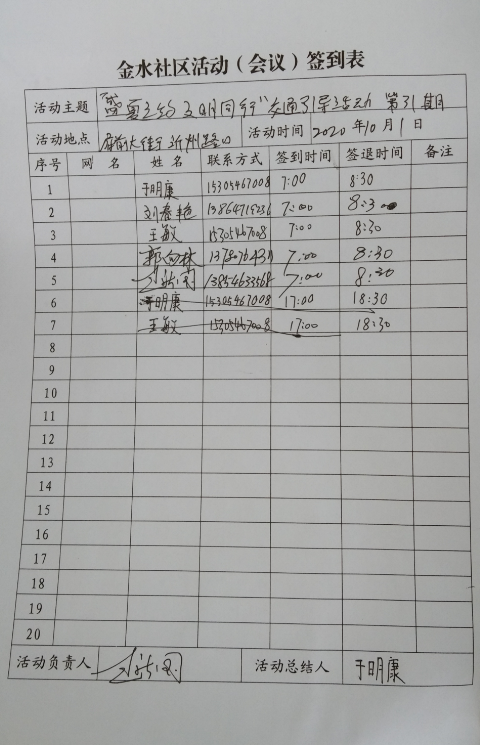 金水社区活动（会议）签到表
活动主题 文明同行"交通引导活动 第31期
活动地点 府前大街 沂州路口 活动时间 2020年10月1日
序号 网名 姓名 联系方式 签到时间 签退时间 备注
1 于明康 15305467008 7:00 8:30
2 刘春艳 13864719236 7:00 8:30
3 王敏 15305467008 7:00 8:30
4 郭向林 7:00 8:30
5 13854633568 7:00 8:30
6 于明康 15305467008 17:00 18:30
7 王敏 15305467008 17:00 18:30
8
9
10
11
12
13
14
15
16
17
18
19
20
活动负责人 活动总结人 于明康